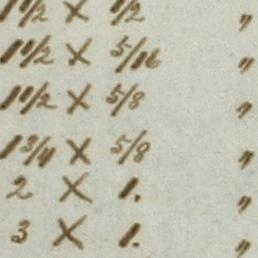 1 1/2 X 1/2 "
1 1/2 X 5/16 "
1 1/2 X 5/8 "
1 3/4 X 5/8 "
2 X 1. "
3 X 1. "